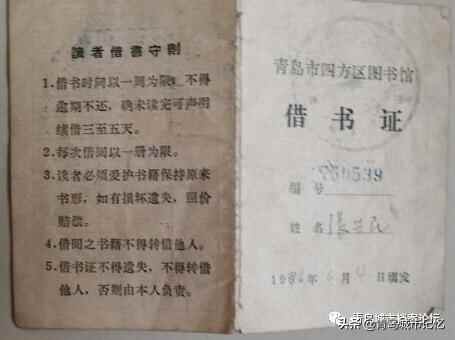 讀者借書守則
1.借书时间以一周为限，不得
逾期不还，确未读完可声明
续借三至五天。
2.每次借阅以一册为限。
3.读者必须爱护书籍保持原来
书形，如有损坏遗失，照价
赔偿。
4.借阅之书籍不得转借他人。
5.借书证不得遗失，不得转借
他人，否则由本人负责。
青岛市四方区图书馆
借书证
编号
姓名 张
年6月4日填发
青岛城市档案论坛
头条 @青岛城市记忆